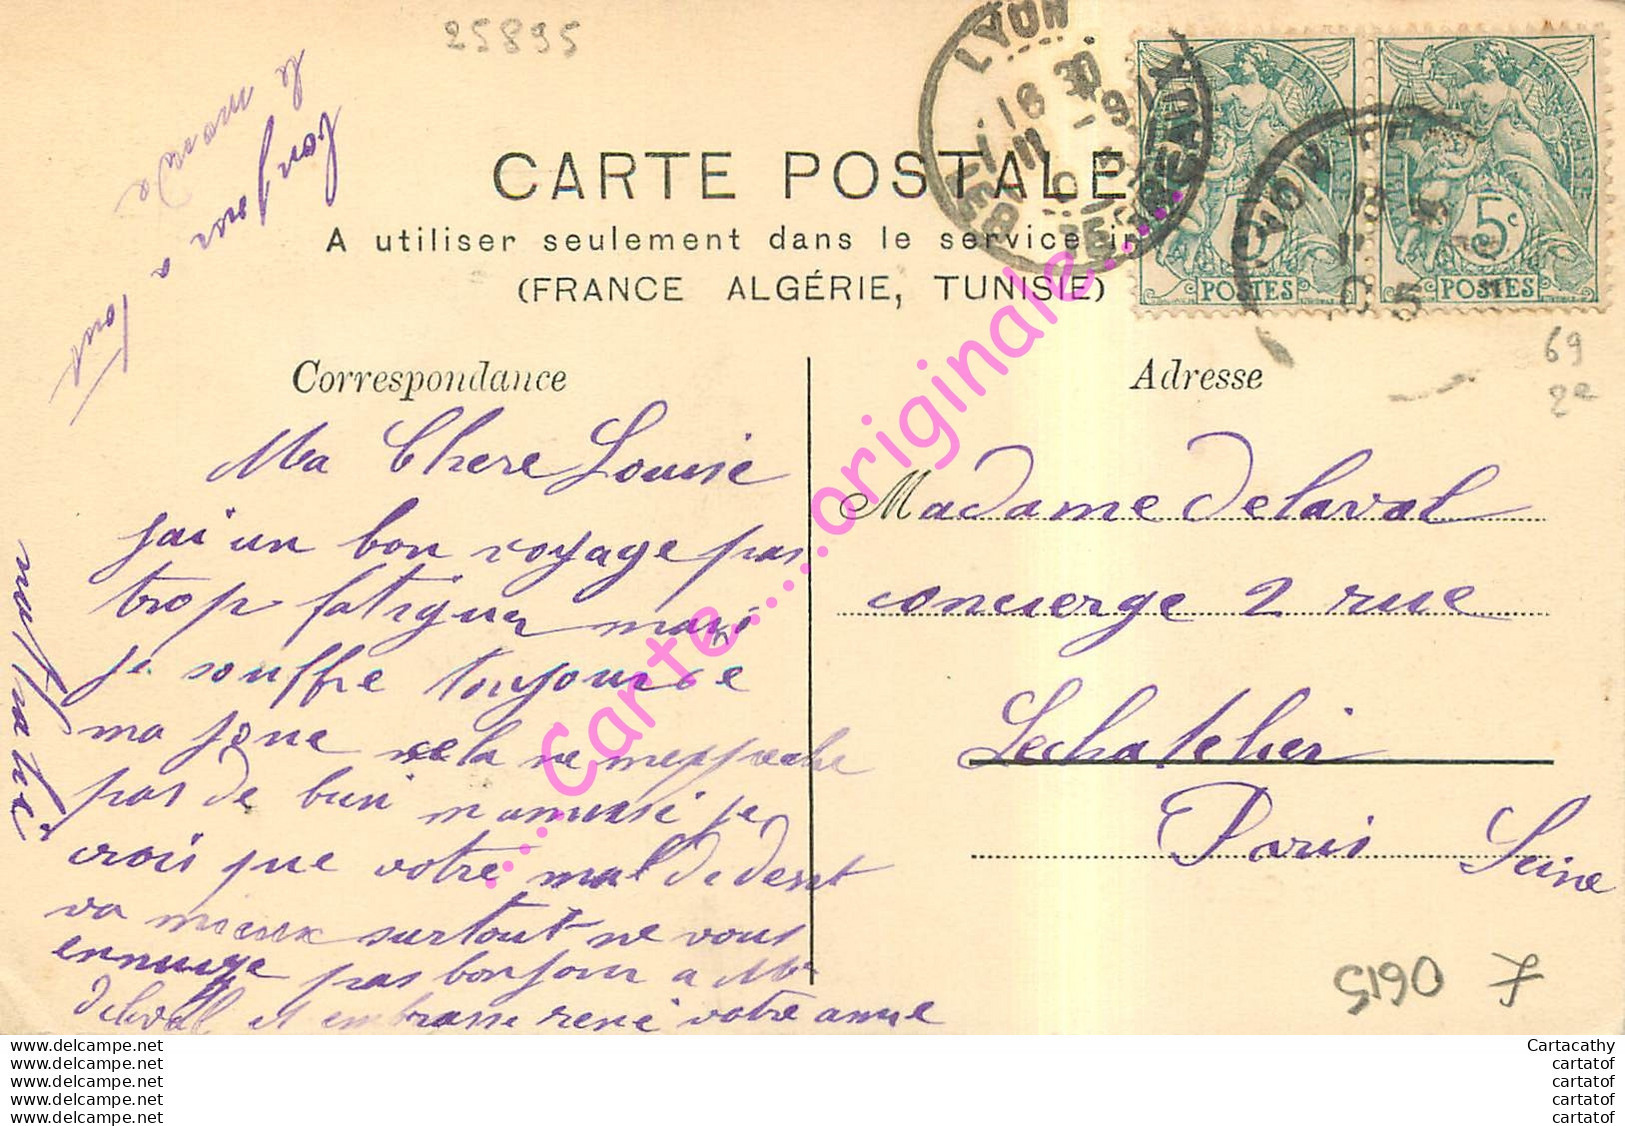 25895
CARTE POSTALE
A utiliser seulement dans le service in
(FRANCE ALGÉRIE, TUNISIE)
LYON TERREAUX
16 30
RHONE
REPUBLIQUE FRANÇAISE
5c
POSTES
5c
POSTES
69
2e
Correspondance
Adresse
Ma Chere Louise
jai un bon voyage pas
trop fatiguer mais
je souffre toujours de
ma joue cela ne meppeche
pas de bien mamuse je
crois que votre mal de dent
va mieux surtout ne vous
ennuye pas bonjour a Mr
delaval et embrasse rené votre amie
Tout
bonjour a
Madame delaval
concierge 2 rue
Lechatelier
Paris Seine
....Carte.........originale........
F 0615
www.delcampe.net
www.delcampe.net
www.delcampe.net
www.delcampe.net
www.delcampe.net
Cartacathy
cartatof
cartatof
cartatof
cartatof